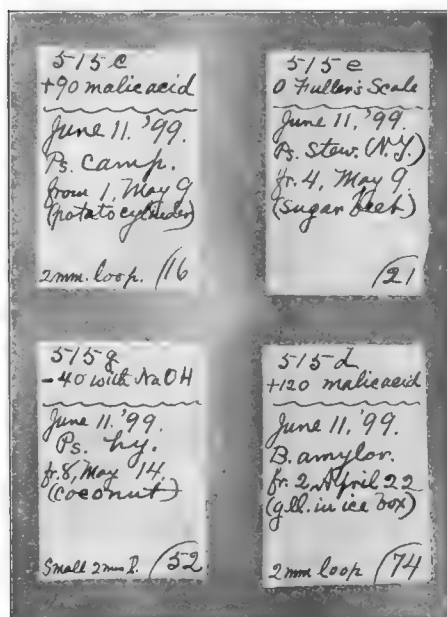 515 c
+90 malic acid
June 11. '99.
Ps. camp.
from 1, May 9
(potato cylinder)
2mm. loop. (16
515 e
0 Fuller's Scale
June 11, '99.
Ps. Stew. (N.Y.)
fr. 4, May 9.
(sugar beet)
(21
515 g
-40 with NaOH
June 11. '99.
Ps. hy.
fr. 8, May 14.
(coconut)
Small 2mm l. (52
515 d
+120 malic acid
June 11, '99.
B. amylov.
fr. 2, April 22
(gel. in ice box)
2mm loop (74